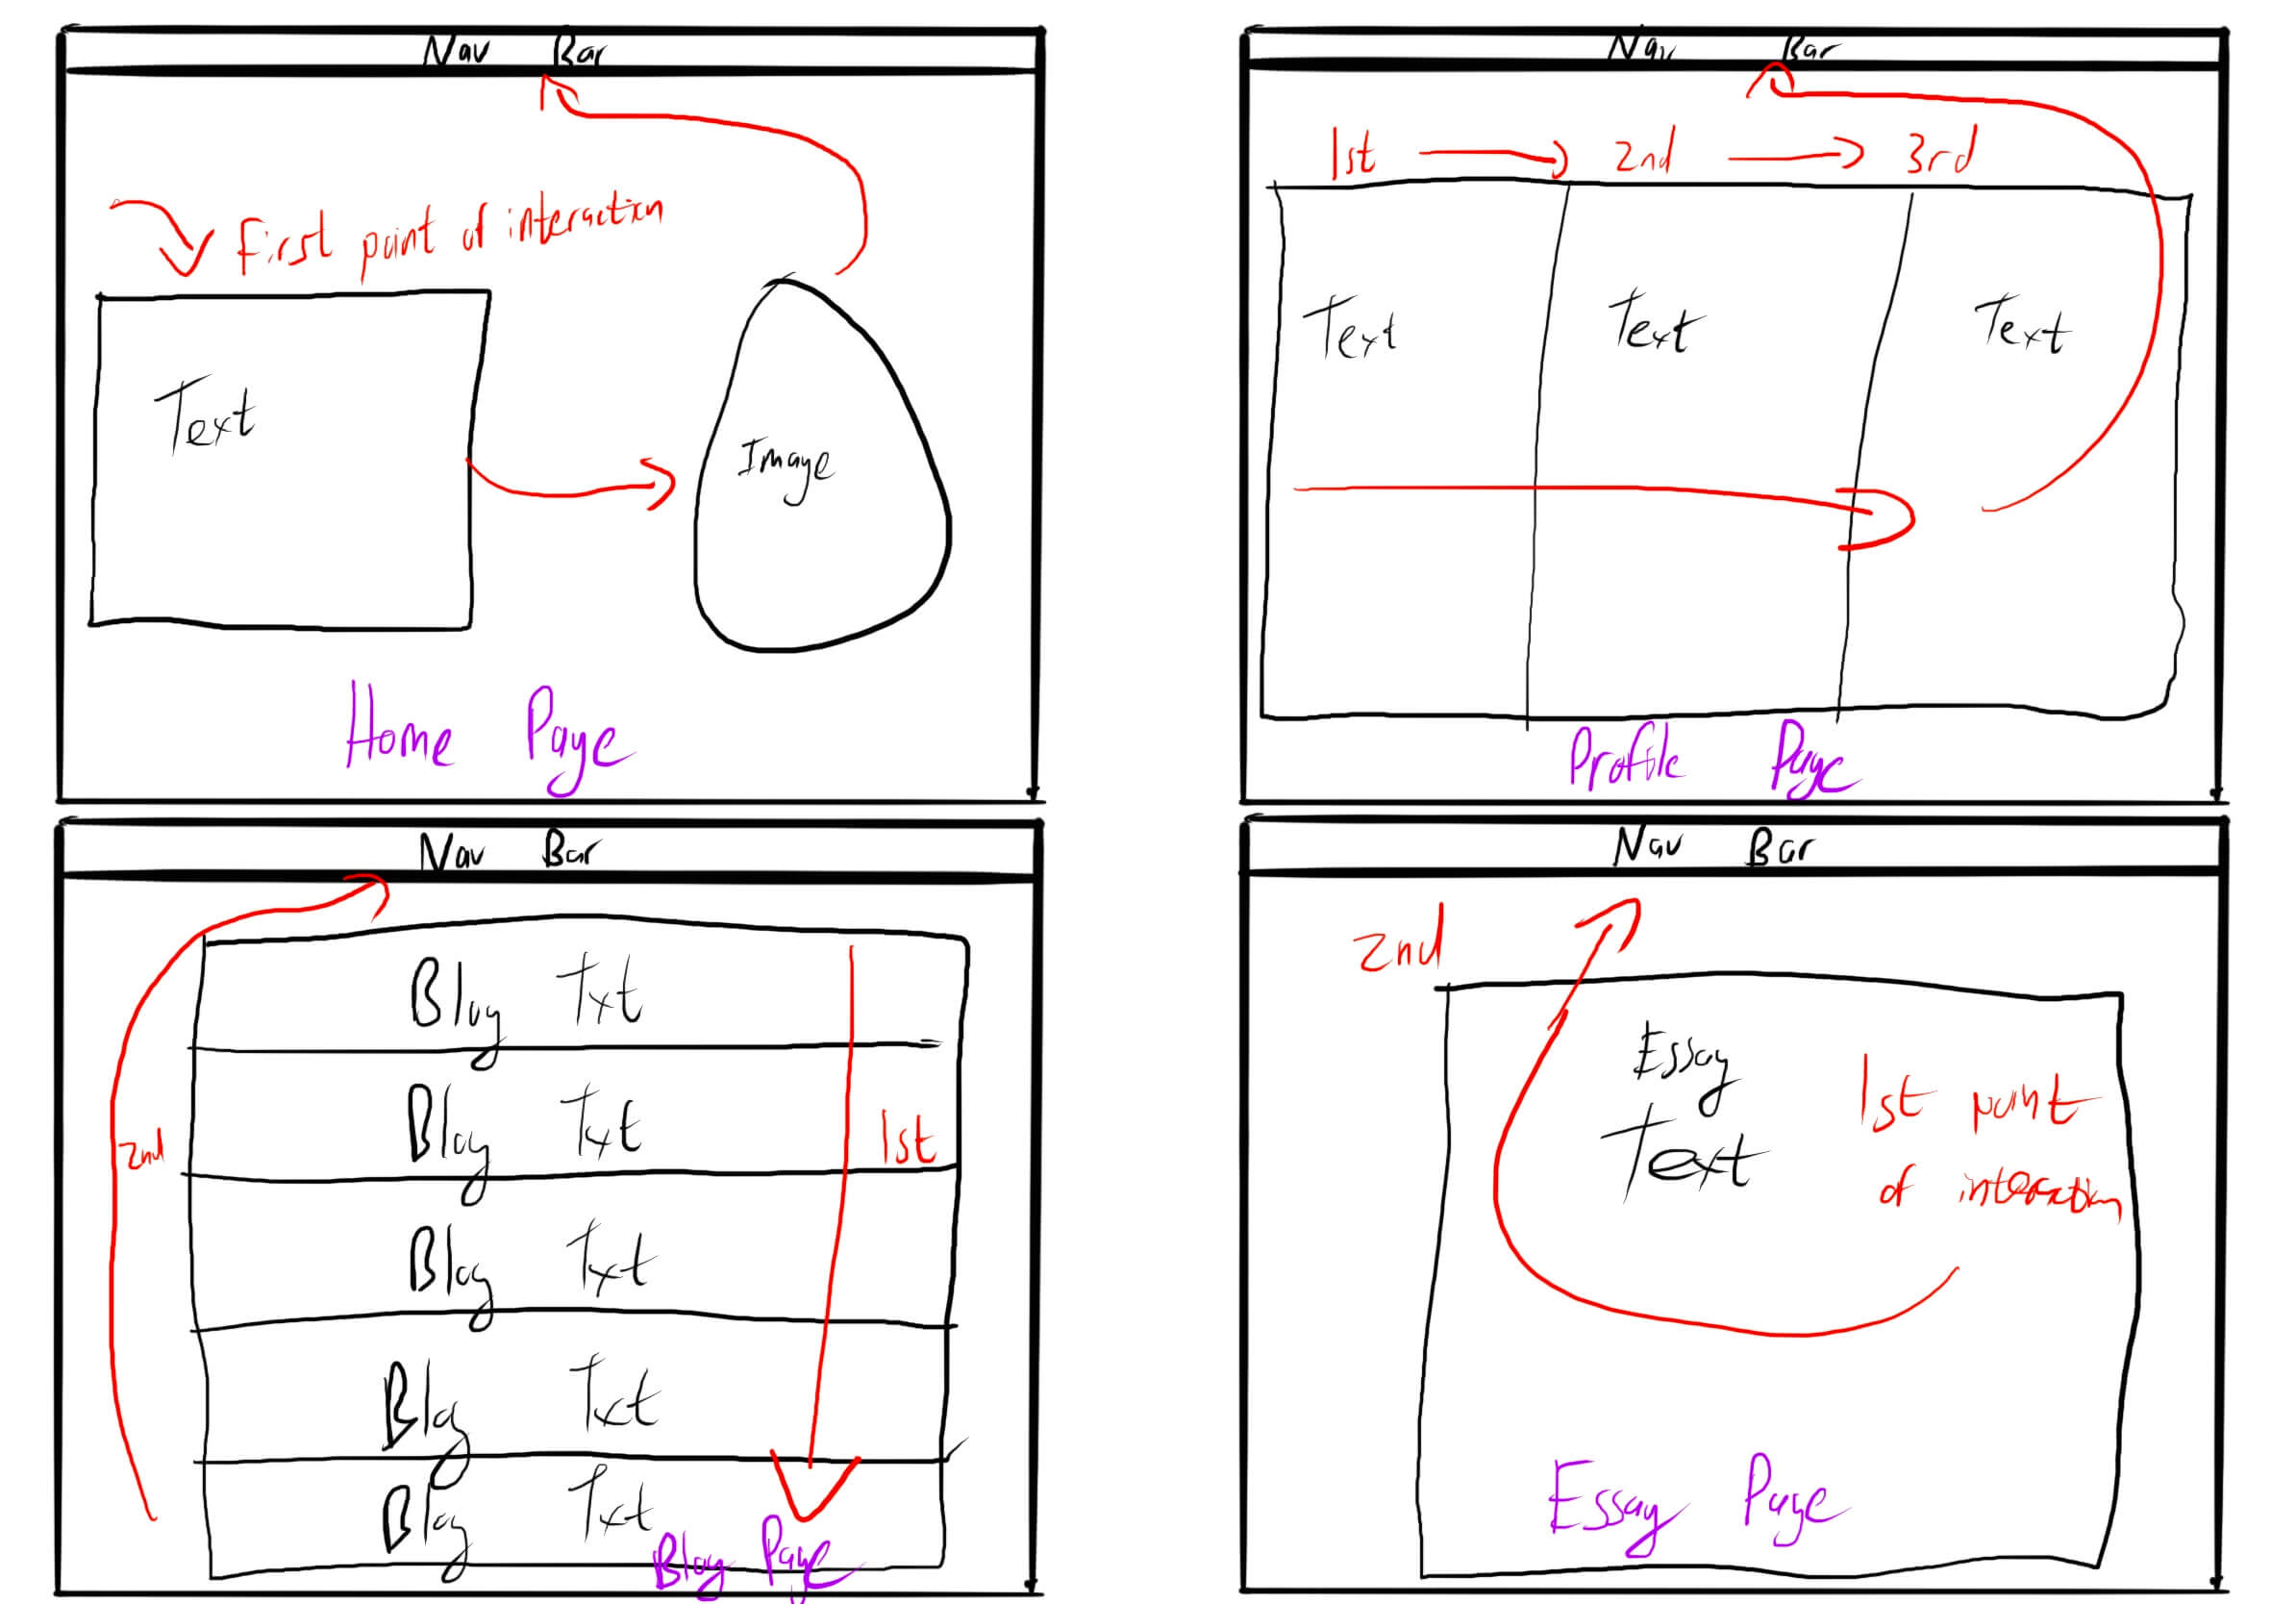 Nav Bar
First point of interaction
Text
Image
Home Page
Nav Bar
1st 2nd 3rd
Text Text Text
Profile Page
Nav Bar
Blog Txt
Blog Txt
2nd
1st
Blog Txt
Blog Txt
Blog Txt
Blog Page
Nav Bar
2nd
Essay
Text
1st point
of interaction
Essay Page